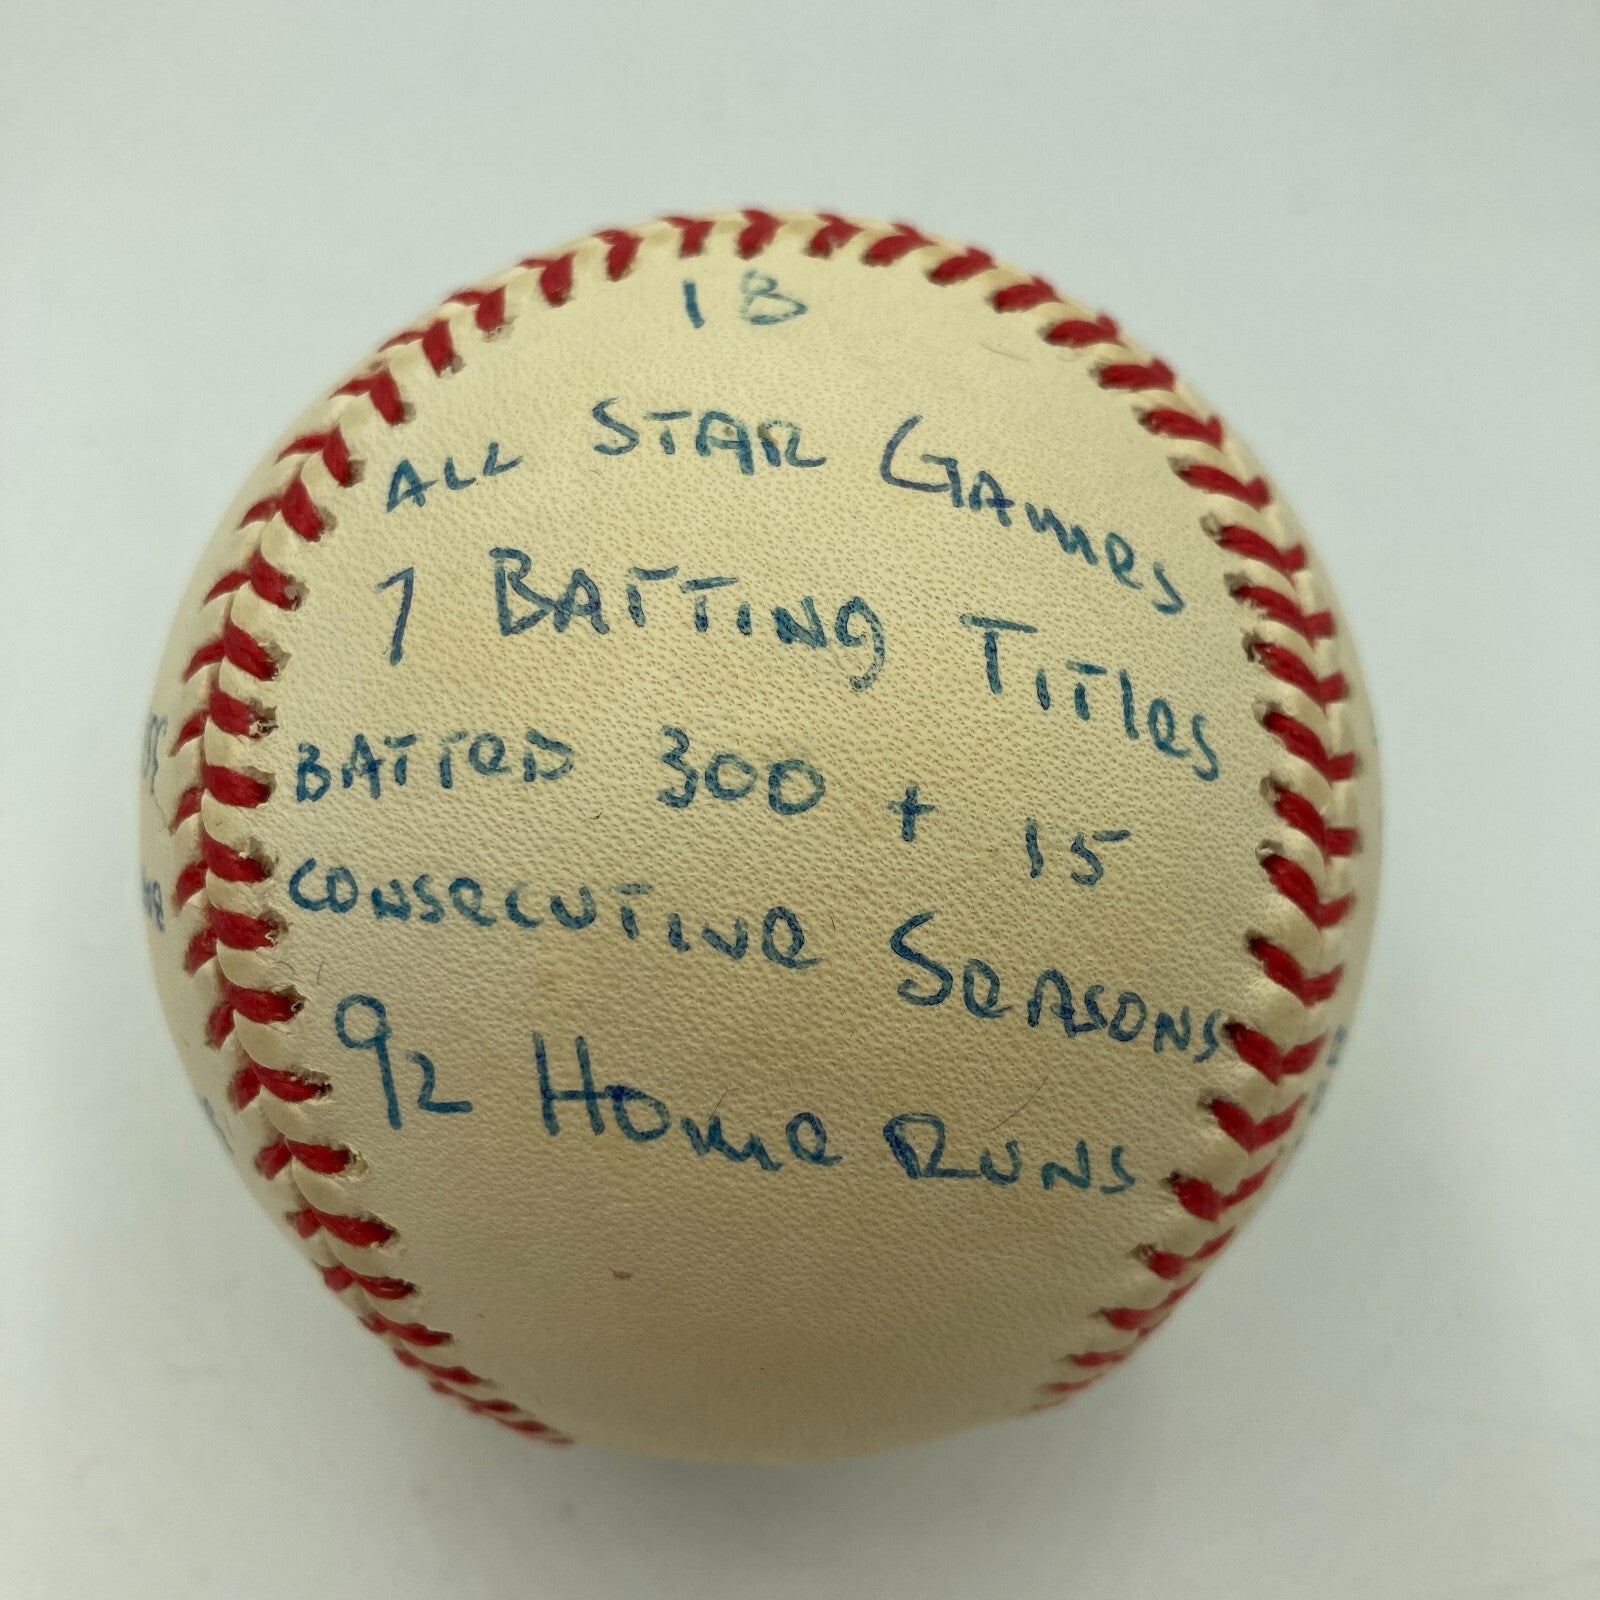 18
ALL STAR GAMES
7 BATTING TITles
BATTeD 300 + 15
CONSeCUTIVe SeASONS
92 HOme RUNS